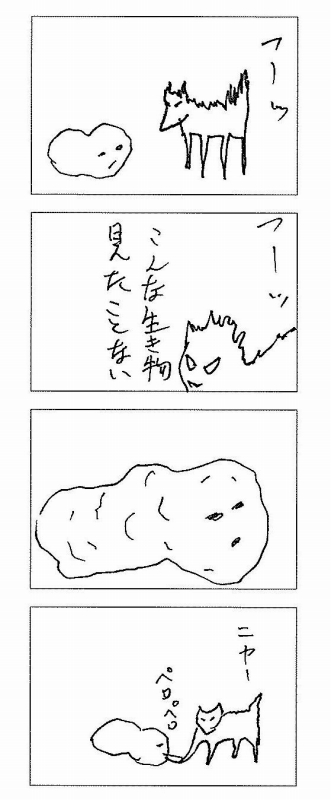 フーッ
フーッ
こんな生き物
見たことない
ニャー
ペロペロ